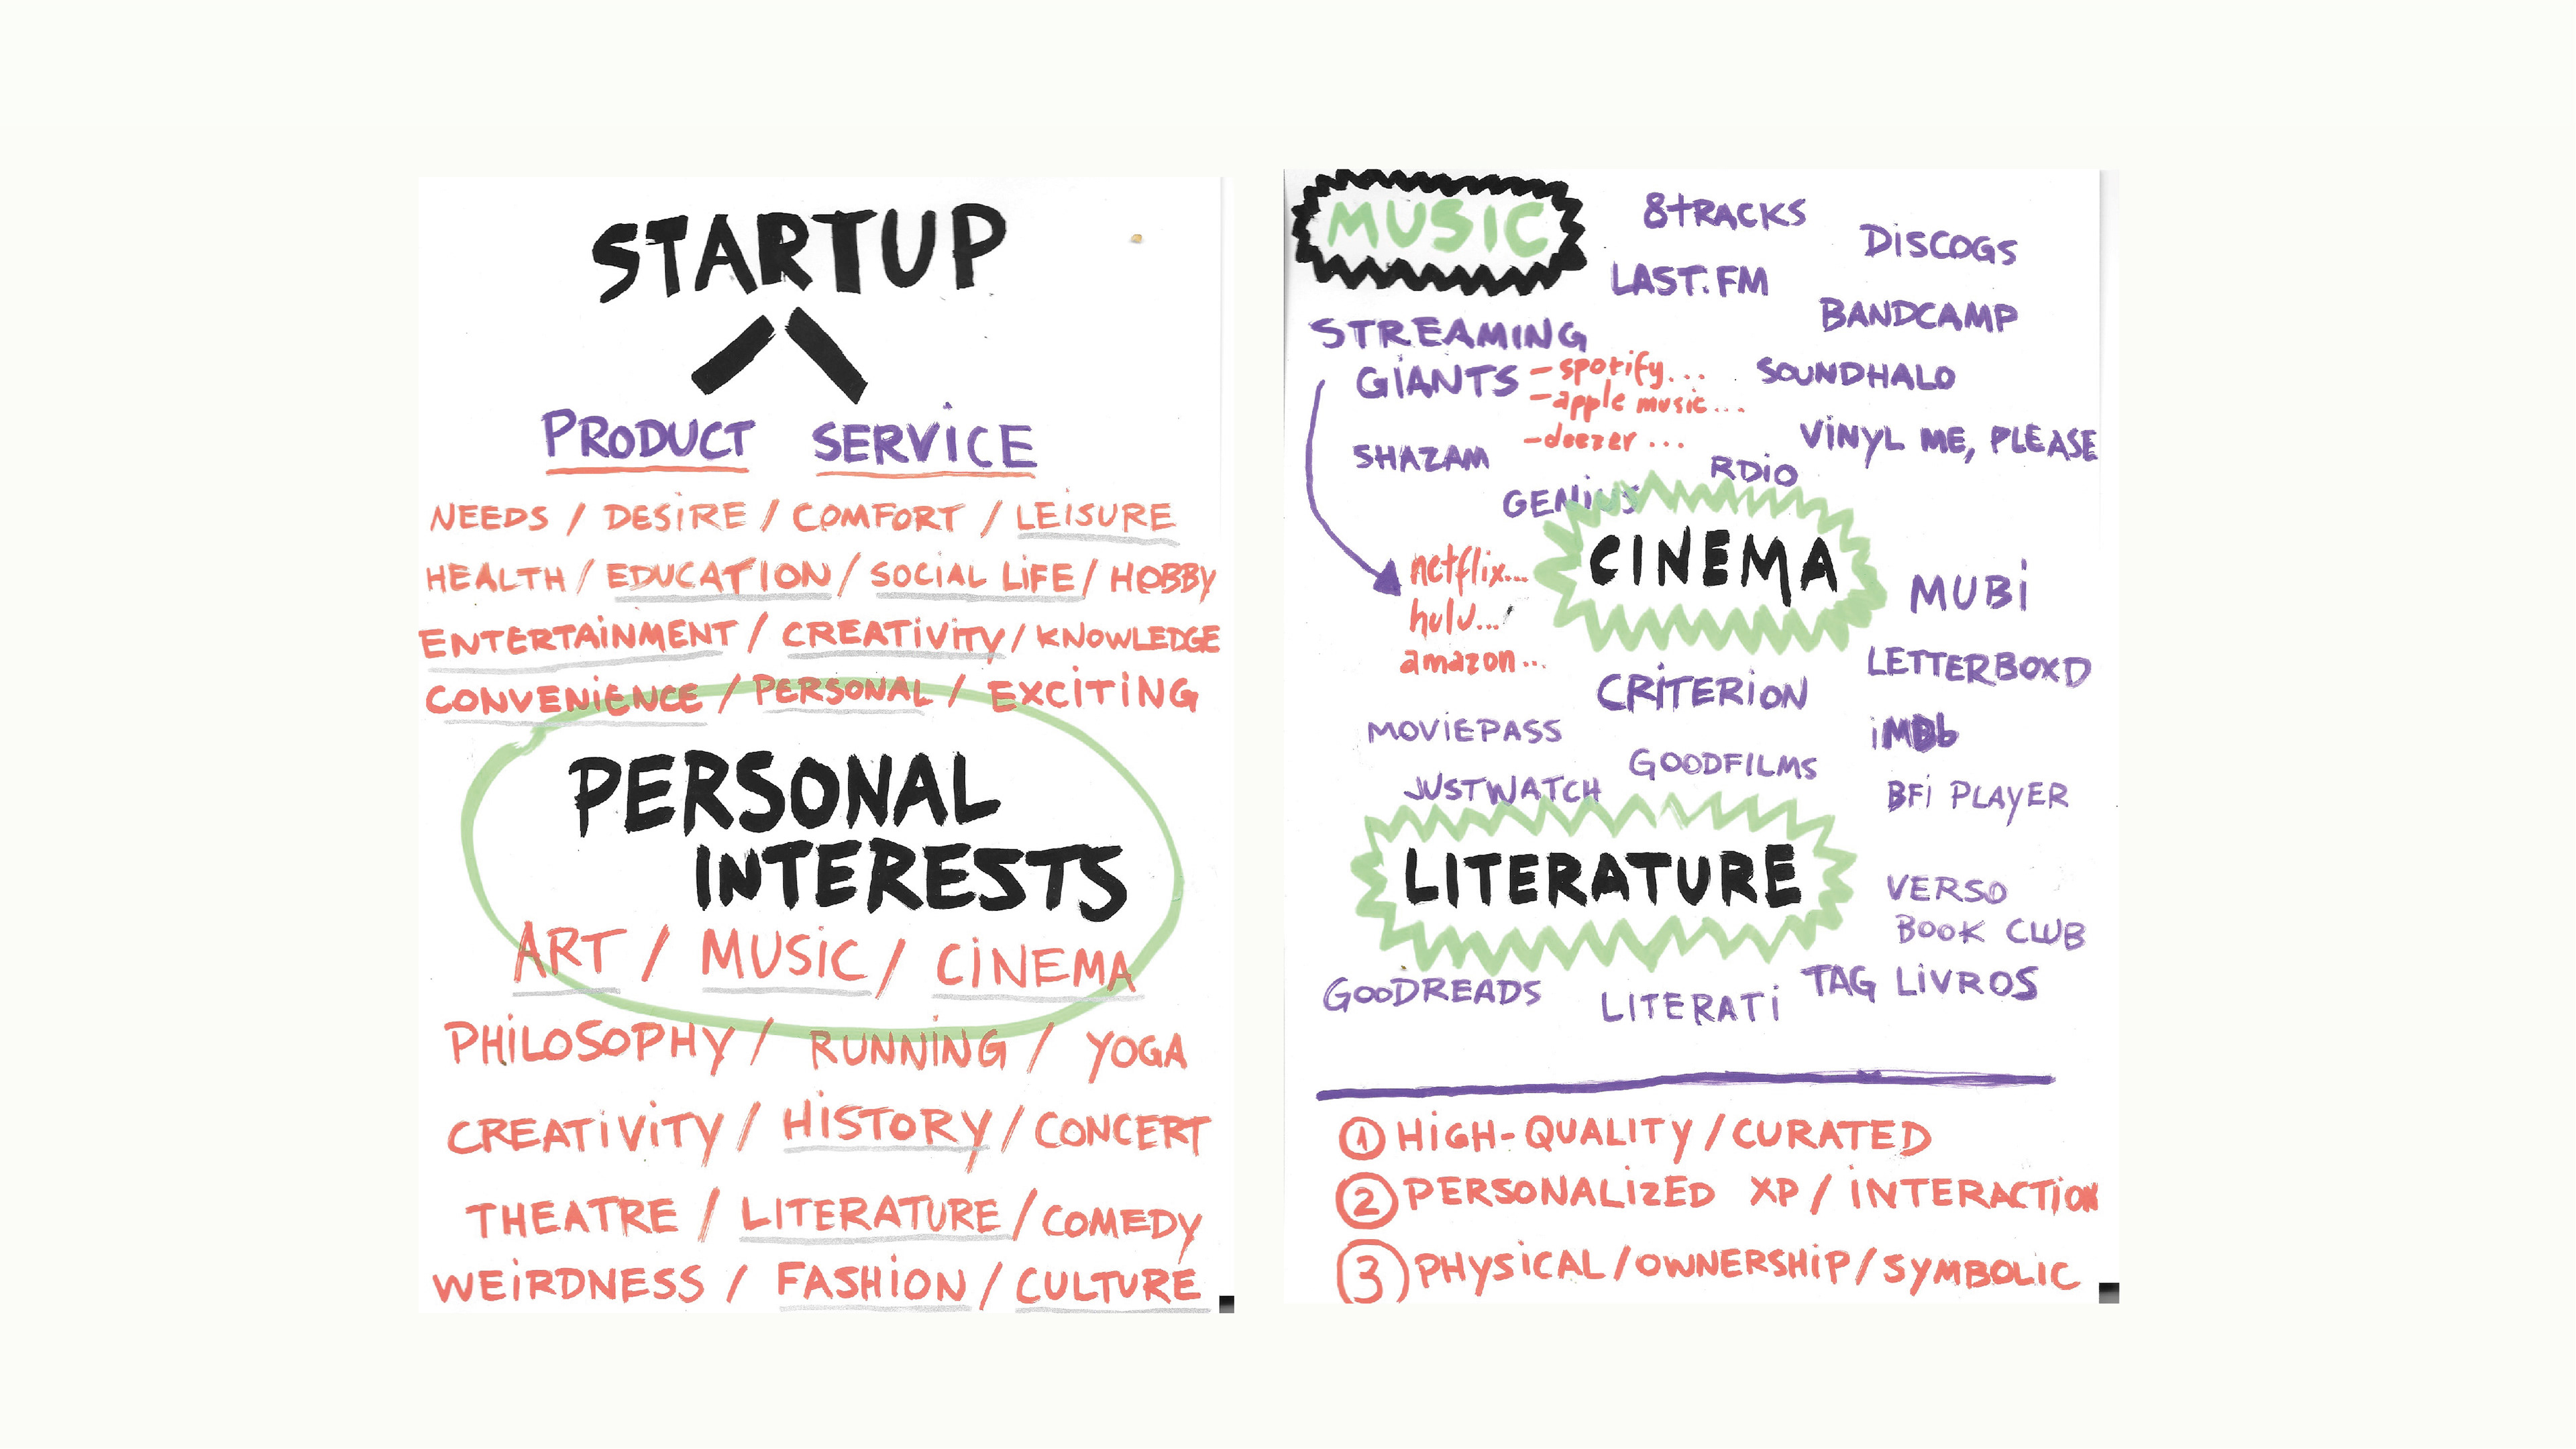 STARTUP
PRODUCT SERVICE
NEEDS / DESIRE / COMFORT / LEISURE
HEALTH / EDUCATION / SOCIAL LIFE / HOBBY
ENTERTAINMENT / CREATIVITY / KNOWLEDGE
CONVENIENCE / PERSONAL / EXCITING
PERSONAL
INTERESTS
ART / MUSIC / CINEMA
PHILOSOPHY / RUNNING / YOGA
CREATIVITY / HISTORY / CONCERT
THEATRE / LITERATURE / COMEDY
WEIRDNESS / FASHION / CULTURE
MUSIC
8TRACKS
DISCOGS
LAST.FM
BANDCAMP
STREAMING
GIANTS
- spotify...
- apple music...
- deezer...
SOUNDHALO
VINYL ME, PLEASE
SHAZAM
RDIO
GENIUS
CINEMA
netflix...
hulu...
amazon...
MUBI
LETTERBOXD
CRITERION
MOVIEPASS
iMDb
GOODFILMS
JUSTWATCH
BFI PLAYER
LITERATURE
VERSO
BOOK CLUB
GOODREADS
LITERATI
TAG LIVROS
1 HIGH-QUALITY / CURATED
2 PERSONALIZED XP / INTERACTION
3 PHYSICAL / OWNERSHIP / SYMBOLIC